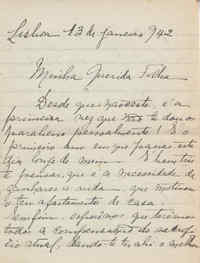 Lisboa 13 de janeiro 942
Minha Querida Filha
Desde que nasceste, é a
primeira vez que não te dou os
parabens pessoalmente! É o
primeiro ano em que passas este
dia longe de mim. E
pensar, que é a necessidade de
a vida, que motivou
o teu afastamento de casa.
Enfim, esperemos que teremos
toda a compensação do sacrifi-
cio atual, dando-te